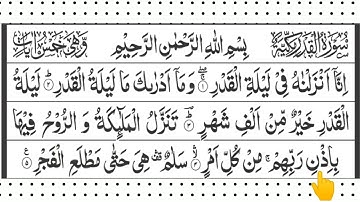 سُوْرَةُ الْقَدْرِ مَكِّيَّةٌ بِسْمِ اللهِ الرَّحْمٰنِ الرَّحِيْمِ وَّهِيَ خَمْسُ اٰيَاتٍ
اِنَّاۤ اَنْزَلْنٰهُ فِىْ لَيْلَةِ الْقَدْرِ ۝١ وَمَاۤ اَدْرٰىكَ مَا لَيْلَةُ الْقَدْرِ ۝٢ لَيْلَةُ
الْقَدْرِ خَيْرٌ مِّنْ اَلْفِ شَهْرٍ ۝٣ تَنَزَّلُ الْمَلٰٓئِكَةُ وَ الرُّوْحُ فِيْهَا
بِاِذْنِ رَبِّهِمْ مِنْ كُلِّ اَمْرٍ ۝٤ سَلٰمٌ هِىَ حَتّٰى مَطْلَعِ الْفَجْرِ ۝٥